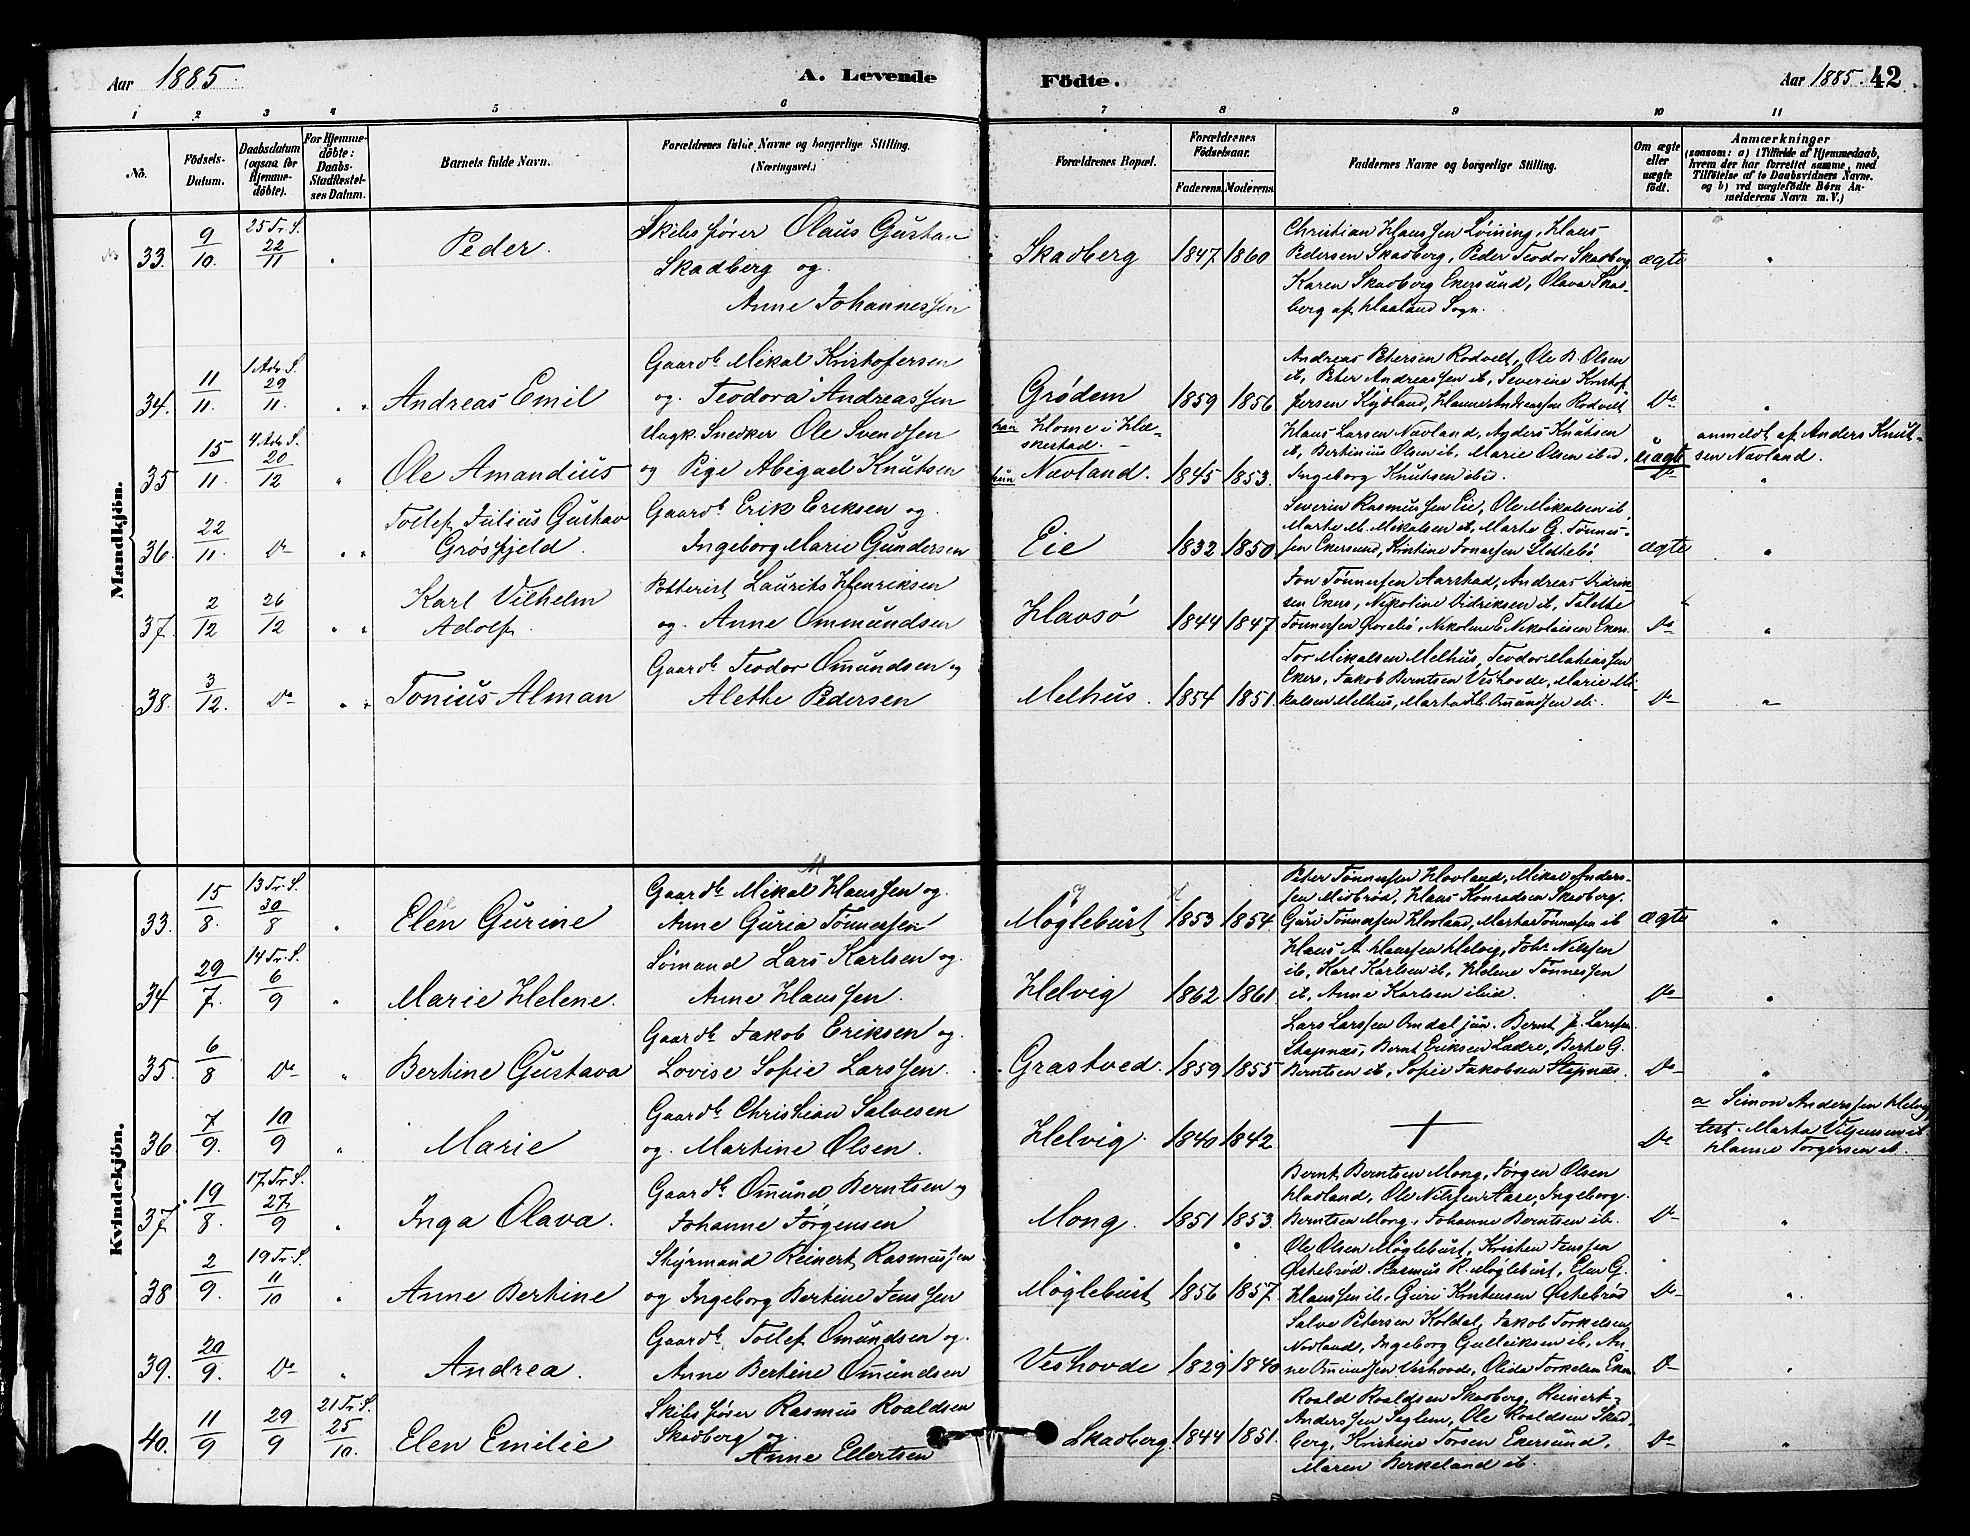 Aar 1885. A. Levende Födte. Aar 1885. 42
1 2 3 4 5 6 7 8 9 10 11
No. Födsels-Datum. Daabsdatum (ogsaa for Hjemmedöbte). For Hjemmedöbte: Daabs-Stadfæstelses Datum. Barnets fulde Navn. Forældrenes fulde Navne og borgerlige Stilling. (Næringsvei.) Forældrenes Bopæl. Forældrenes Födselsaar. Faderens. Moderens. Faddernes Navne og borgerlige Stilling. Om ægte eller uægte födt. Anmærkninger (saasom: a) i Tilfælde af Hjemmedaab, hvem der har forrettet samme, med Tilföielse af to Daabsvidners Navne. og b) ved uægtefödte Börn Anmelderens Navn m. V.)
Mandkjön.
33. 9/10 25 Tr. S. 22/11 Peder. Skibsfører Olaus Gustav
Skadberg og
Anne Johannessen
Skadberg 1847 1860 Christian Hanssen Løining, Hans
Pedersen Skadberg, Peder Teodor Skadberg
Karen Skadberg Ekersund, Olava Skad-
berg af Haaland Sogn.
ægte
34. 11/11. 1 Adv. S. 29/11. Andreas Emil Gaardb. Mikal Kristofersen
og Teodora Andreassen
Grødem 1859 1856 Andreas Petersen Rodvelt, Ole B. Olsen
ib, Peter Andreassen ib, Severine Kristof-
fersen Kydland, Hanne Andreassen Rodvelt
Do
35 15/11. 4 Adv. S. 20/12 Ole Amandius Ungk. Snedker Ole Svendsen
og Pige Abigael Knutsen
han Home i Hæ-
skestad.
hun Nævland. 1845 1853. Hans Larsen Nævland, Anders Knutsen
ib, Bertinius Olsen ib, Marie Olsen ibid,
Ingeborg Knutsen ibid.
uægte
anmeldt af Anders Knut-
sen Navland.
36. 22/11. Do Tollef Julius Gustav
Grøsfjeld.
Gaardb. Erik Eriksen og
Ingeborg Marie Gundersen
Eie 1832 1850 Severin Rasmussen Eie, Ole Mikalsen ib
Marte M. Mikalsen ib, Marte G. Tønnes-
sen Ekersund, Kristine Jonassen Slettebø
ægte
37. 2/12 26/12 Karl Vilhelm
Adolf.
Potterist Laurits Henriksen
og Anne Ommundsen
Havsø 1844 1847 Jon Tønnessen Aarstad, Andreas Didrik-
sen Ekers, Nikoline Didriksen ib, Talette
Do
38. 3/12. Do Tonius Alman Gaardb. Teodor Omundsen og
Alethe Pedersen
Melhus. 1854 1851. Tor Mikalsen Melhus, Teodor Mathiassen
Ekers, Jakob Berntsen Veshovde, Marie Mi-
kalsen Melhus, Marta H. Omundsen ib.
Do
Kvindekjön.
33. 15/8. 13 Tr. S. 30/8 Elen Gurine Gaardb. Mikal Hanssen og
Anne Guria Tønnessen
Møglebust 1853 1854 Peter Tønnessen Hovland, Mikal Anders-
sen Midbrød, Hans Konradsen Skadberg.
Guri Tønnessen Hovland, Marta Tønnessen ib
ægte
34 29/7. 14 Tr. S. 6/9 Marie Helene. Sømand Lars Karlsen og
Anne Hanssen.
Helvig 1862 1861 Hans A. Hanssen Helvig, Johs Nilssen
ib, Karl Karlsen ib, Helene Tønnessen
ib, Anne Karlsen ibid.
Do
35. 6/8 Do Bertine Gustava Gaardb. Jakob Eriksen og
Lovise Sofie Larssen.
Grastved. 1859 1855 Lars Larssen Omdal jun. Bernt J. Larssen
Stapnæs, Bernt Eriksen Ladre, Berte G.
Berntsen ib, Sofie Jakobsen Stapnæs.
Do
36 7/9. 10/9 Marie Gaardb. Christian Salvesen
og Martine Olsen.
Helvig. 1840 1842. Do
a Simon Anderssen Helvig
test. Marta
Hanne Torgersen ib.
37 19/8. 17 Tr. S. 27/9 Inga Olava. Gaardb. Omund Berntsen og
Johanne Jørgensen
Mong. 1851 1853. Bernt Berntsen Mong, Jørgen Olsen
Hadland, Ole Nilssen Aase, Ingeborg
Berntsen Mong, Johanne Berntsen ib.
Do
38 2/9. 19 Tr. S. 11/10 Anne Bertine Styrmand Reinert Rasmussen
og Ingeborg Bertine Jenssen
Møglebust 1856 1857. Ole Olsen Møglebust, Kristen Jenssen
Østebrød. Rasmus R. Møglebust, Elen G.
Hanssen ib, Guri Kristensen Østebrød
Do
39. 20/9. Do Andrea. Gaardb. Tollef Omundsen og
Anne Bertine Omundsen
Veshovde 1829 1840 Salve Petersen Koldal, Jakob Torkelsen
Novland, Ingeborg Gulleiksen ib, An-
ne Omundsen Veshovde, Olide Torkelsen Eker.
Do
40. 11/9 29/9 21 Tr. S. 25/10. Elen Emilie Skibsfører Rasmus Roaldsen
Skadberg og
Anne Ellertsen
Skadberg 1844 1851. Roald Roaldsen Skadberg, Reinert
Anderssen Seglem, Ole Roaldsen Skad-
berg, Kristine Torsen Ekersund,
Maren Berkeland ib.
Do